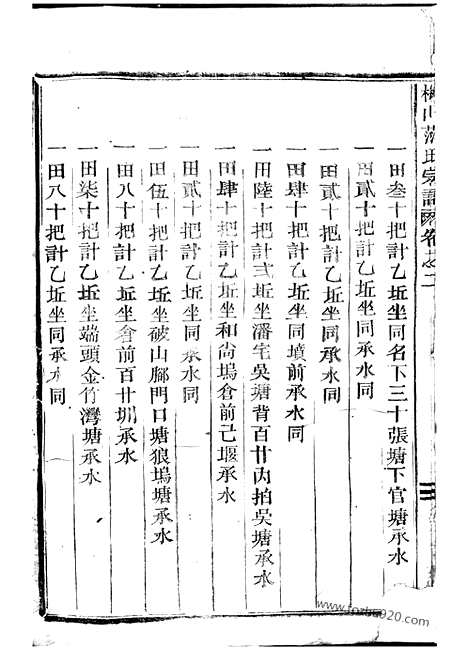 一田叁十把計乙坵坐同名下三十張塘下官塘承水
一田貳十把計乙坵坐同承水同
一田貳十把計乙坵坐同承水同
一田肆十把計乙坵坐同墳前承水同
一田陸十把計弍坵坐潘宅吳塘背百廿內拍吳塘承水
一田肆十把計乙坵坐和尚塢倉前己堰承水
一田貳十把計乙坵坐同承水同
一田伍十把計乙坵坐破山腳門口塘狼塢塘承水
一田八十把計乙坵坐倉前百廿圳承水
一田柒十把計乙坵坐端頭金竹灣塘承水
一田八十把計乙坵坐同承水同
山 氏宗譜 卷 之二